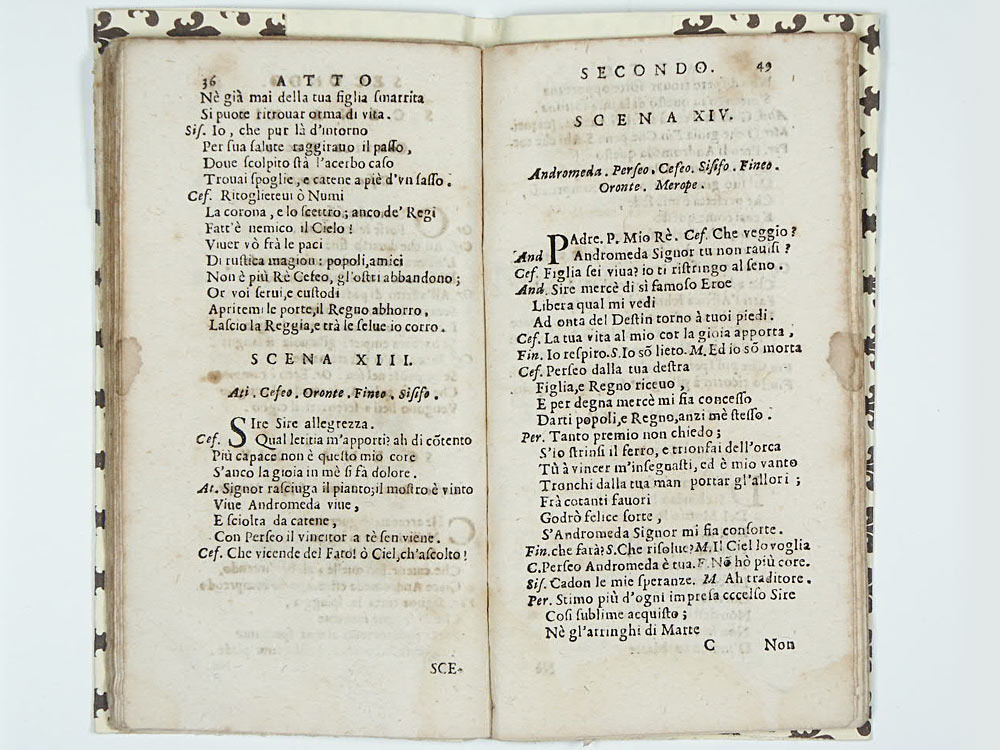 36 ATTO
Nè già mai della tua figlia smarrita
Si puote ritrouar orma di vita.
Sis. Io, che pur là d'intorno
Per sua salute raggirauo il passo,
Doue scolpito stà l'acerbo caso
Trouai spoglie, e catene a piè d'vn sasso.
Cef. Ritoglieteui ò Numi
La corona, e lo scettro; anco de' Regi
Fatt'è nemico il Cielo!
Viuer vò frà le paci
Di rustica magion: popoli, amici
Non è più Rè Cefeo, gl'ostri abbandono;
Or voi serui, e custodi
Apritemi le porte, il Regno abhorro,
Lascio la Reggia, e trà le selue io corro.
SCENA XIII.
Ati. Cefeo. Oronte. Fineo. Sisifo.
SIre Sire allegrezza.
Cef. Qual letitia m'apporti? ah di cõtento
Più capace non è questo mio core
S'anco la gioia in mè si fà dolore.
At. Signor rasciuga il pianto; il mostro è vinto
Viue Andromeda viue,
E sciolta da catene,
Con Perseo il vincitor a tè sen viene.
Cef. Che vicende del Fato! ò Ciel, ch'ascolto!
SCE-
SECONDO. 49
SCENA XIV.
Andromeda. Perseo. Cefeo. Sisifo. Fineo.
Oronte. Merope.
PAdre. P. Mio Rè. Cef. Che veggio?
And Andromeda Signor tu non rauisi?
Cef. Figlia sei viua? io ti ristringo al seno.
And. Sire mercè di sì famoso Eroe
Libera qual mi vedi
Ad onta del Destin torno à tuoi piedi.
Cef. La tua vita al mio cor la gioia apporta,
Fin. Io respiro. S. Io sõ lieto. M. Ed io sõ morta
Cef. Perseo dalla tua destra
Figlia, e Regno riceuo,
E per degna mercè mi sia concesso
Darti popoli, e Regno, anzi mè stesso.
Per. Tanto premio non chiedo;
S'io strinsi il ferro, e trionfai dell'orca
Tù à vincer m'insegnasti, ed è mio vanto
Tronchi dalla tua man portar gl'allori;
Frà cotanti fauori
Godrò felice sorte,
S'Andromeda Signor mi fia consorte.
Fin. che farà? S. Che risolue? M. Il Ciel lo voglia
C. Perseo Andromeda è tua. F. Nõ hò più core.
Sis. Cadon le mie speranze. M. Ah traditore.
Per. Stimo più d'ogni impresa eccelso Sire
Così sublime acquisto;
Nè gl'arringhi di Marte
C Non